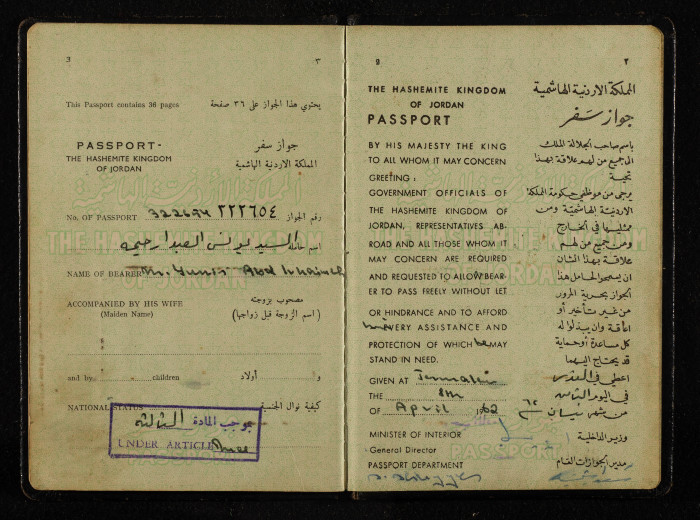 3
٣
This Passport contains 36 pages
يحتوي هذا الجواز على ٣٦ صفحة
PASSPORT-
THE HASHEMITE KINGDOM
OF JORDAN
جواز سفر
المملكة الاردنية الهاشمية
No. OF PASSPORT
رقم الجواز
اسم حامله السيد يونس
NAME OF BEARER Mr. Yunis Abd
ACCOMPANIED BY HIS WIFE
(Maiden Name)
مصحوب بزوجته
(اسم الزوجة قبل زواجها)
and by children
و اولاد
NATIONAL STATUS
كيفية نوال الجنسية
بموجب المادة الثالثة
UNDER ARTICLE Three
THE HASHEMITE KINGDOM
OF JORDAN
PASSPORT
٢
THE HASHEMITE KINGDOM
OF JORDAN
PASSPORT
BY HIS MAJESTY THE KING
TO ALL WHOM IT MAY CONCERN
GREETING :
GOVERNMENT OFFICIALS OF
THE HASHEMITE KINGDOM OF
JORDAN, REPRESENTATIVES AB-
ROAD AND ALL THOSE WHOM IT
MAY CONCERN ARE REQUIRED
AND REQUESTED TO ALLOW BEAR-
ER TO PASS FREELY WITHOUT LET
OR HINDRANCE AND TO AFFORD
EVERY ASSISTANCE AND
PROTECTION OF WHICH he MAY
STAND IN NEED.
GIVEN AT Jerusalem
THE 8th
OF April 1962
MINISTER OF INTERIOR
General Director
PASSPORT DEPARTMENT
المملكة الاردنية الهاشمية
جواز سفر
باسم صاحب الجلالة الملك
الى جميع من لهم علاقة بهذا
تحية
يرجى من موظفي حكومة المملكة
الاردنية الهاشمية ومن
ممثليها في الخارج
ومن جميع من لهم
علاقة بهذا الشأن
ان يسمحوا لحامل هذا
الجواز بحرية المرور
من غير تأخير أو
اعاقة وان يبذلوا له
كل مساعدة أو حماية
قد يحتاج اليهما
اعطي في القدس
في اليوم الثامن
من شهر نيسان ٦٢
وزير الداخلية
مدير الجوازات العام
THE HASHEMITE KINGDOM
OF JORDAN
PASSPORT